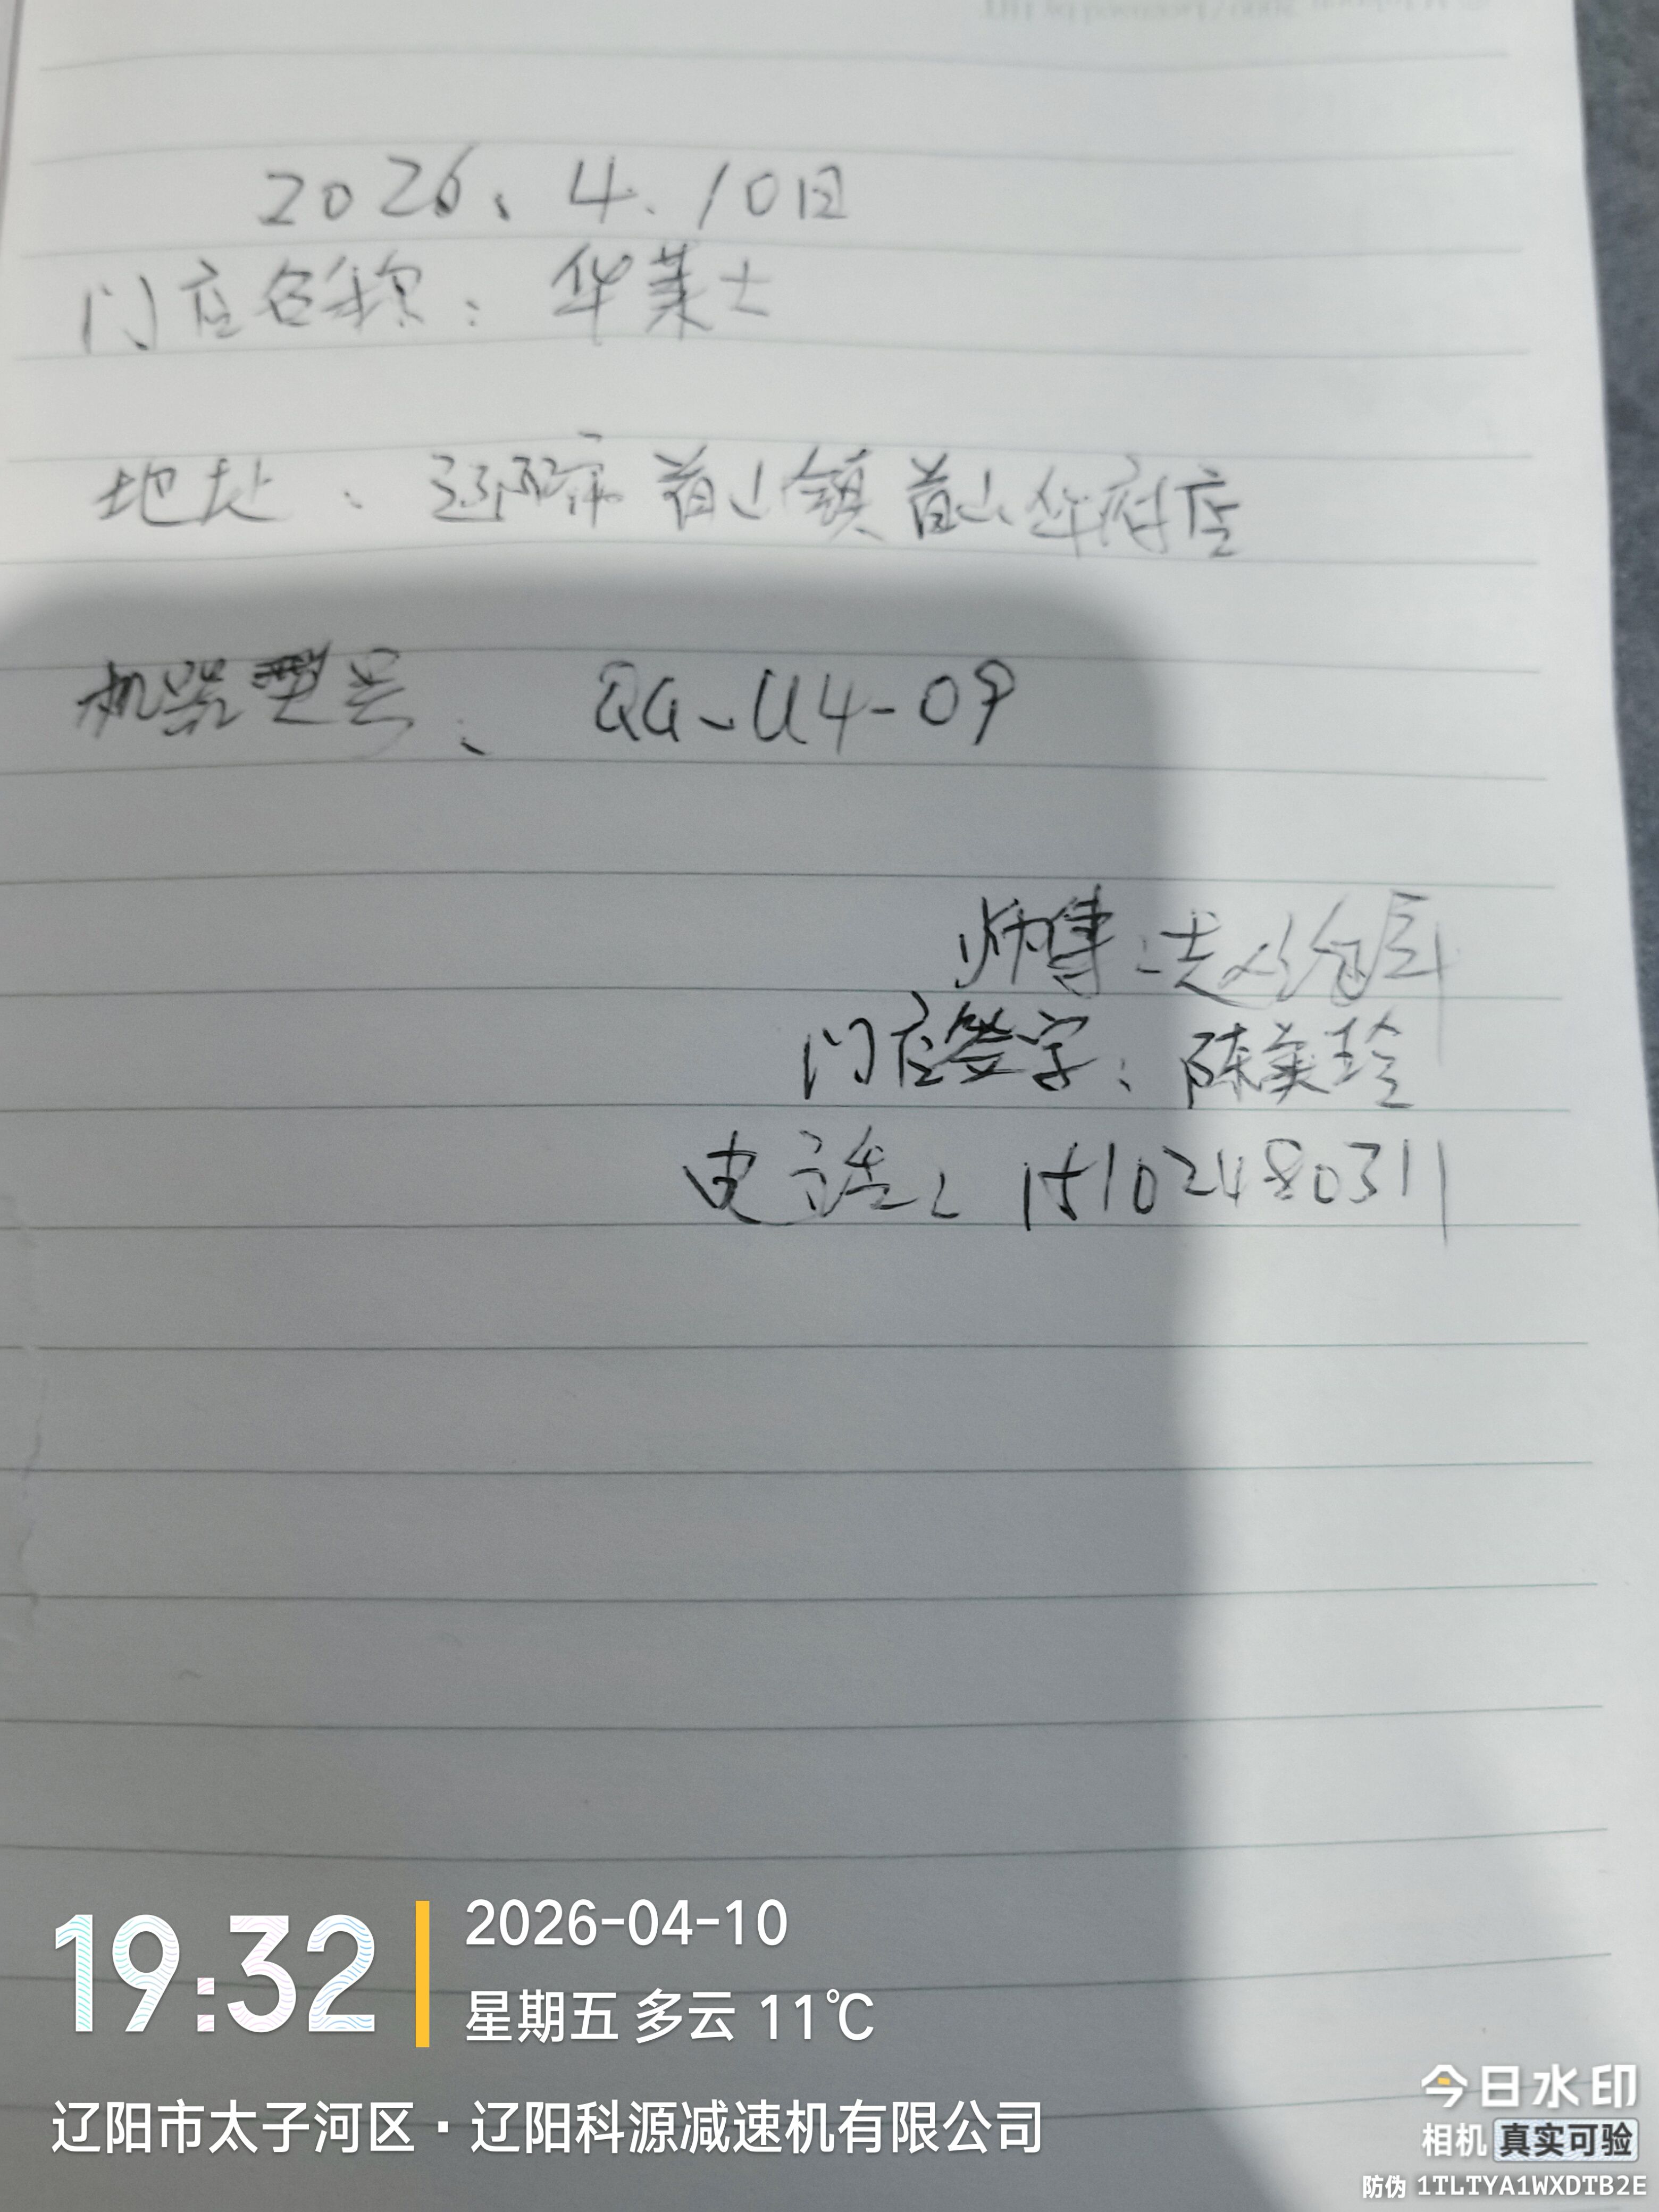 2026、4.10日
门店名称：华莱士
地址：辽阳市首山镇首山华府店
机器型号：QG-U4-09
师傅：赵
门店签字：陈美玲
电话：15102480311
19:32
2026-04-10
星期五 多云 11℃
辽阳市太子河区·辽阳科源减速机有限公司
今日水印
相机 真实可验
防伪 1TLTYA1WXDTB2E